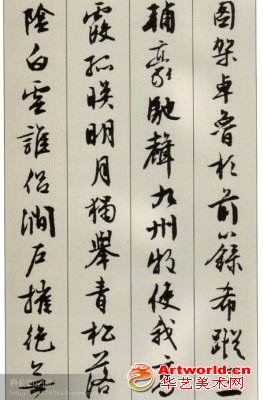 圖架卓魯於前籙希蹤三
輔豪馳聲九州牧使我高
霞孤映明月獨舉青松落
陰白雲誰侶澗戶摧絕無
Artworld.cn
华艺美术网